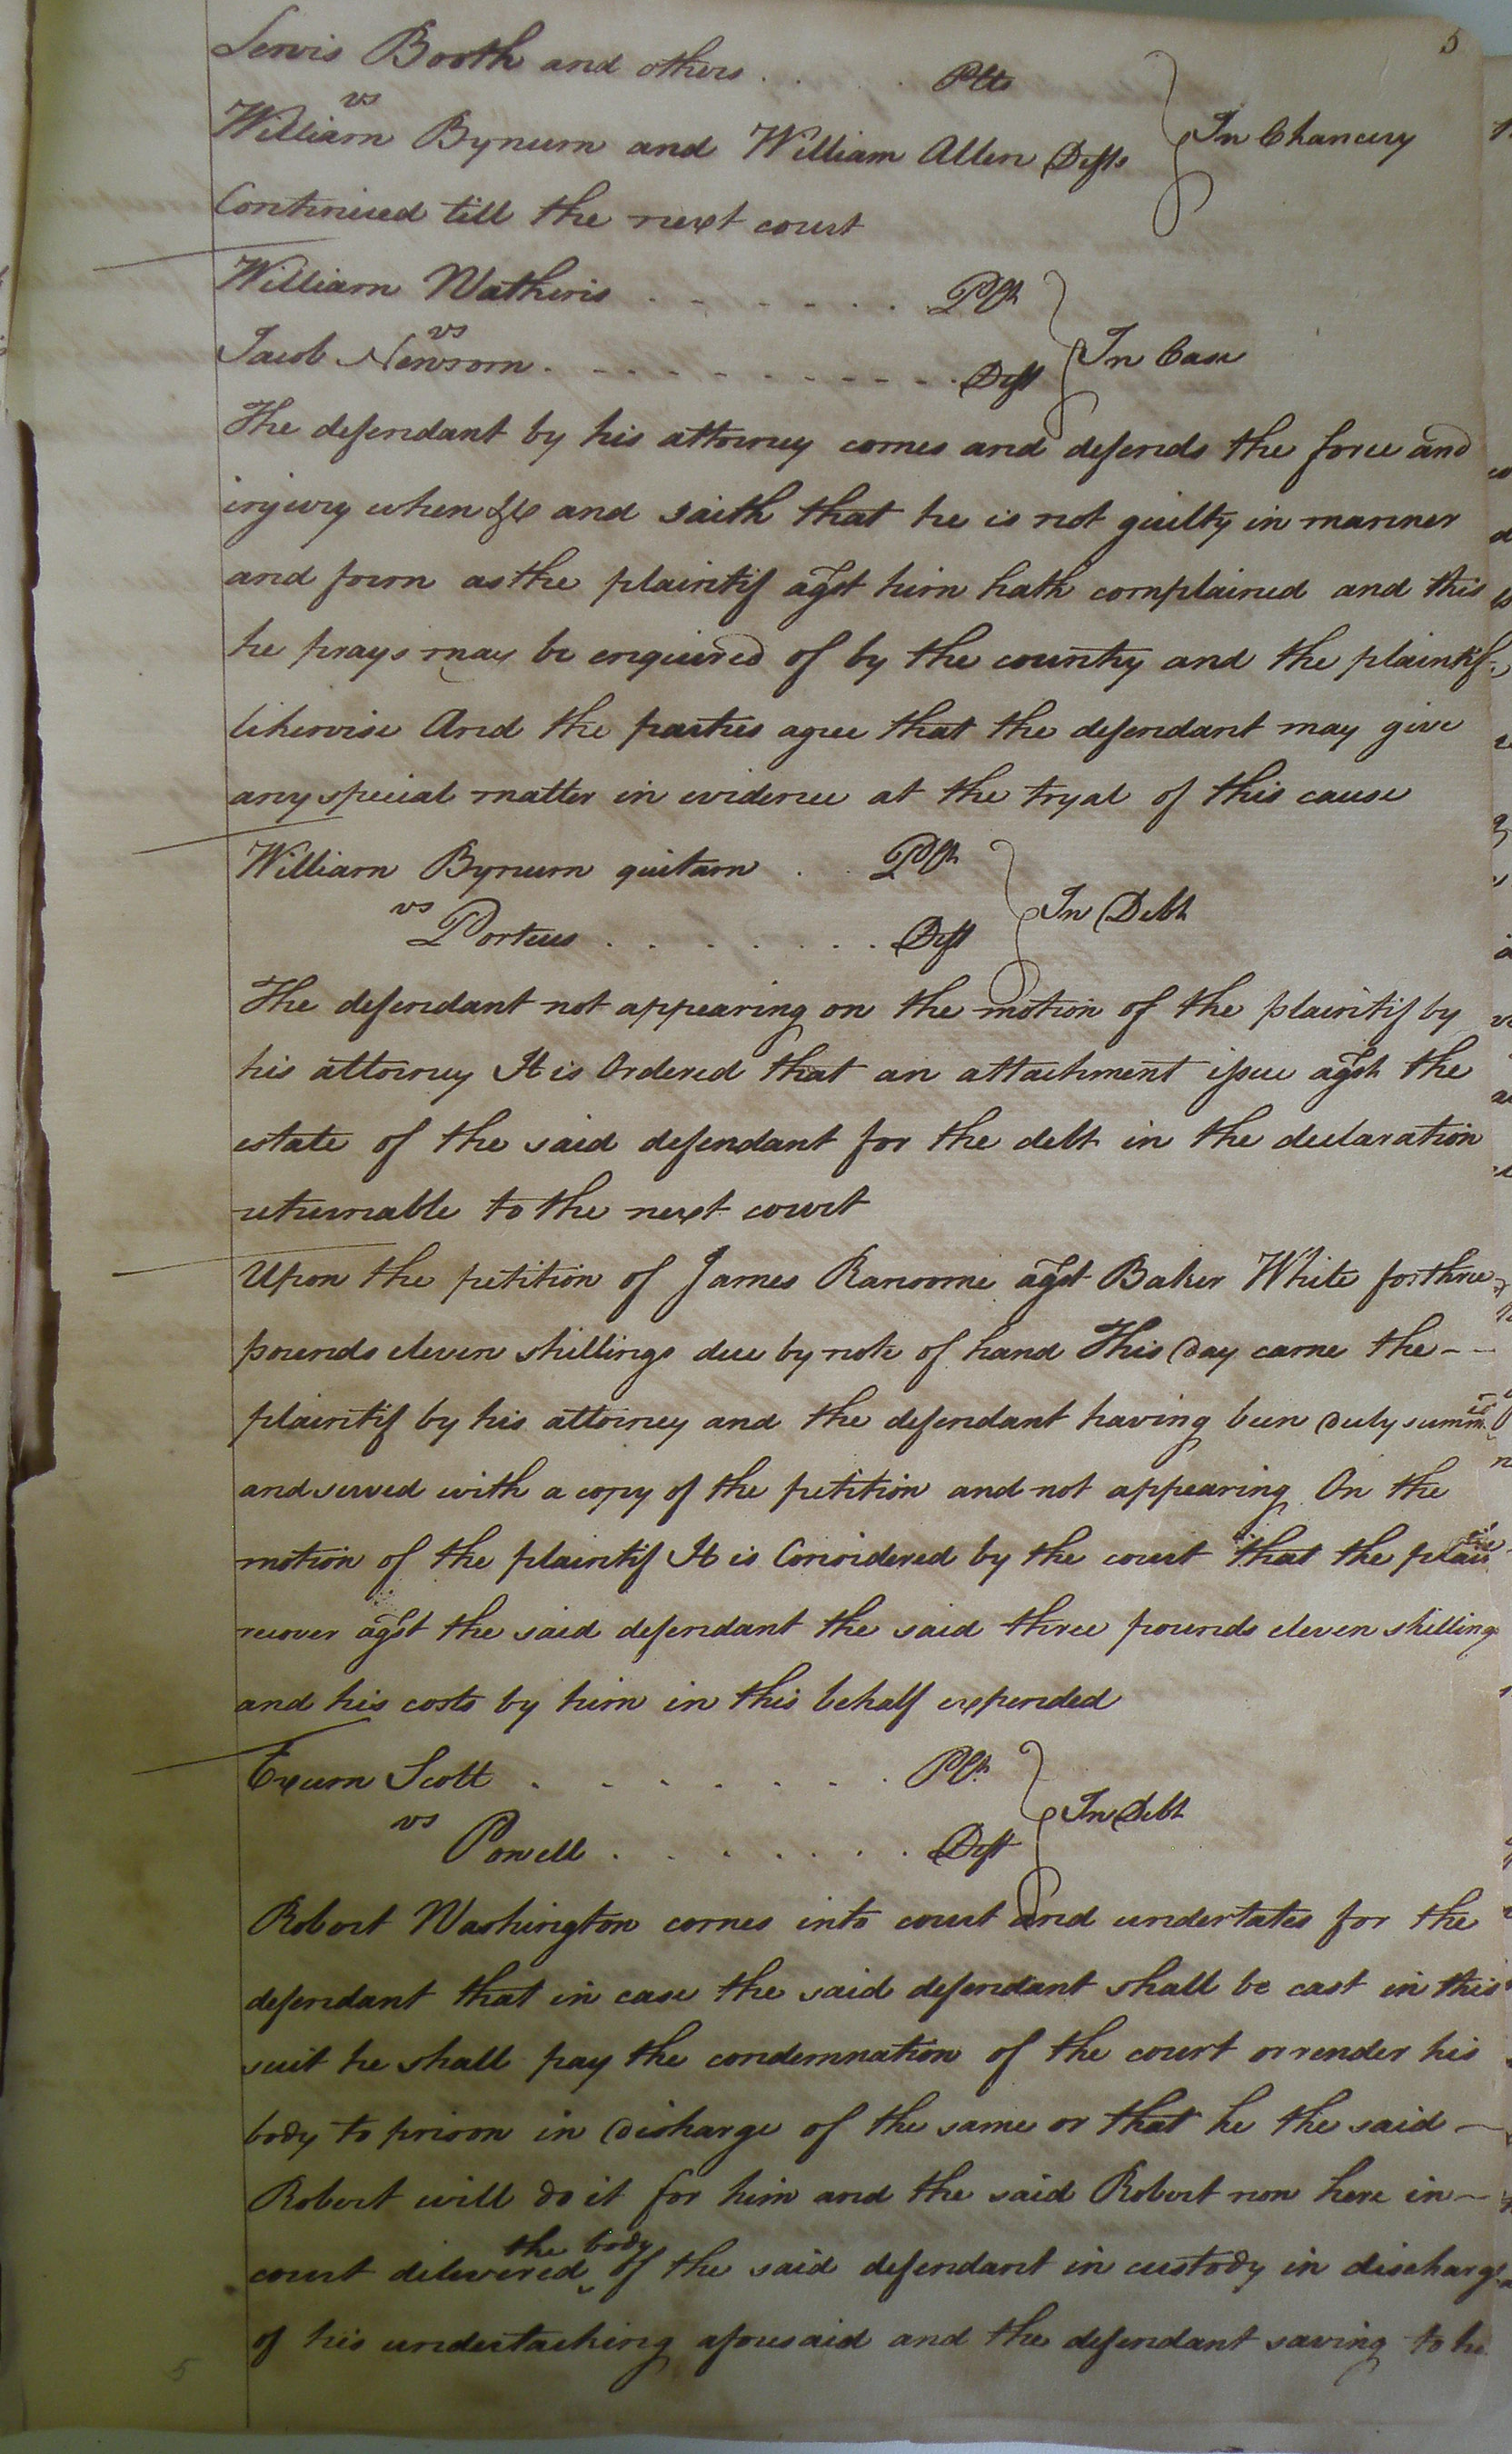 5
Lewis Booth and others . . . Plts
vs
William Bynum and William Allen Defts } In Chancery
Continued till the next court
William Watkins . . . . . . . Plt
vs
Jacob Newsom . . . . . . . . . . . Deft } In Case
The defendant by his attorney comes and defends the force and
injury when &c and saith that he is not guilty in manner
and form as the plaintif agst him hath complained and this
he prays may be enquired of by the country and the plaintif
likewise And the parties agree that the defendant may give
any special matter in evidence at the tryal of this cause
William Bynum quitam . . Plt
vs
Porteus . . . . . . . Deft } In Debt
The defendant not appearing on the motion of the plaintif by
his attorney It is Ordered that an attachment issue agst the
estate of the said defendant for the debt in the declaration
returnable to the next court
Upon the petition of James Ransome agst Baker White for three
pounds eleven shillings due by note of hand This day came the --
plaintif by his attorney and the defendant having been duly summ
and served with a copy of the petition and not appearing On the
motion of the plaintif It is Considered by the court that the plain
recover agst the said defendant the said three pounds eleven shillings
and his costs by him in this behalf expended
Exum Scott . . . . . . . Plt
vs
Powell . . . . . . . Deft } In Debt
Robert Washington comes into court and undertakes for the
defendant that in case the said defendant shall be cast in this
suit he shall pay the condemnation of the court or render his
body to prison in discharge of the same or that he the said —
Robert will do it for him and the said Robert now here in —
the body
court delivered ‸ of the said defendant in custody in discharge
of his undertaking aforesaid and the defendant saving to he
5